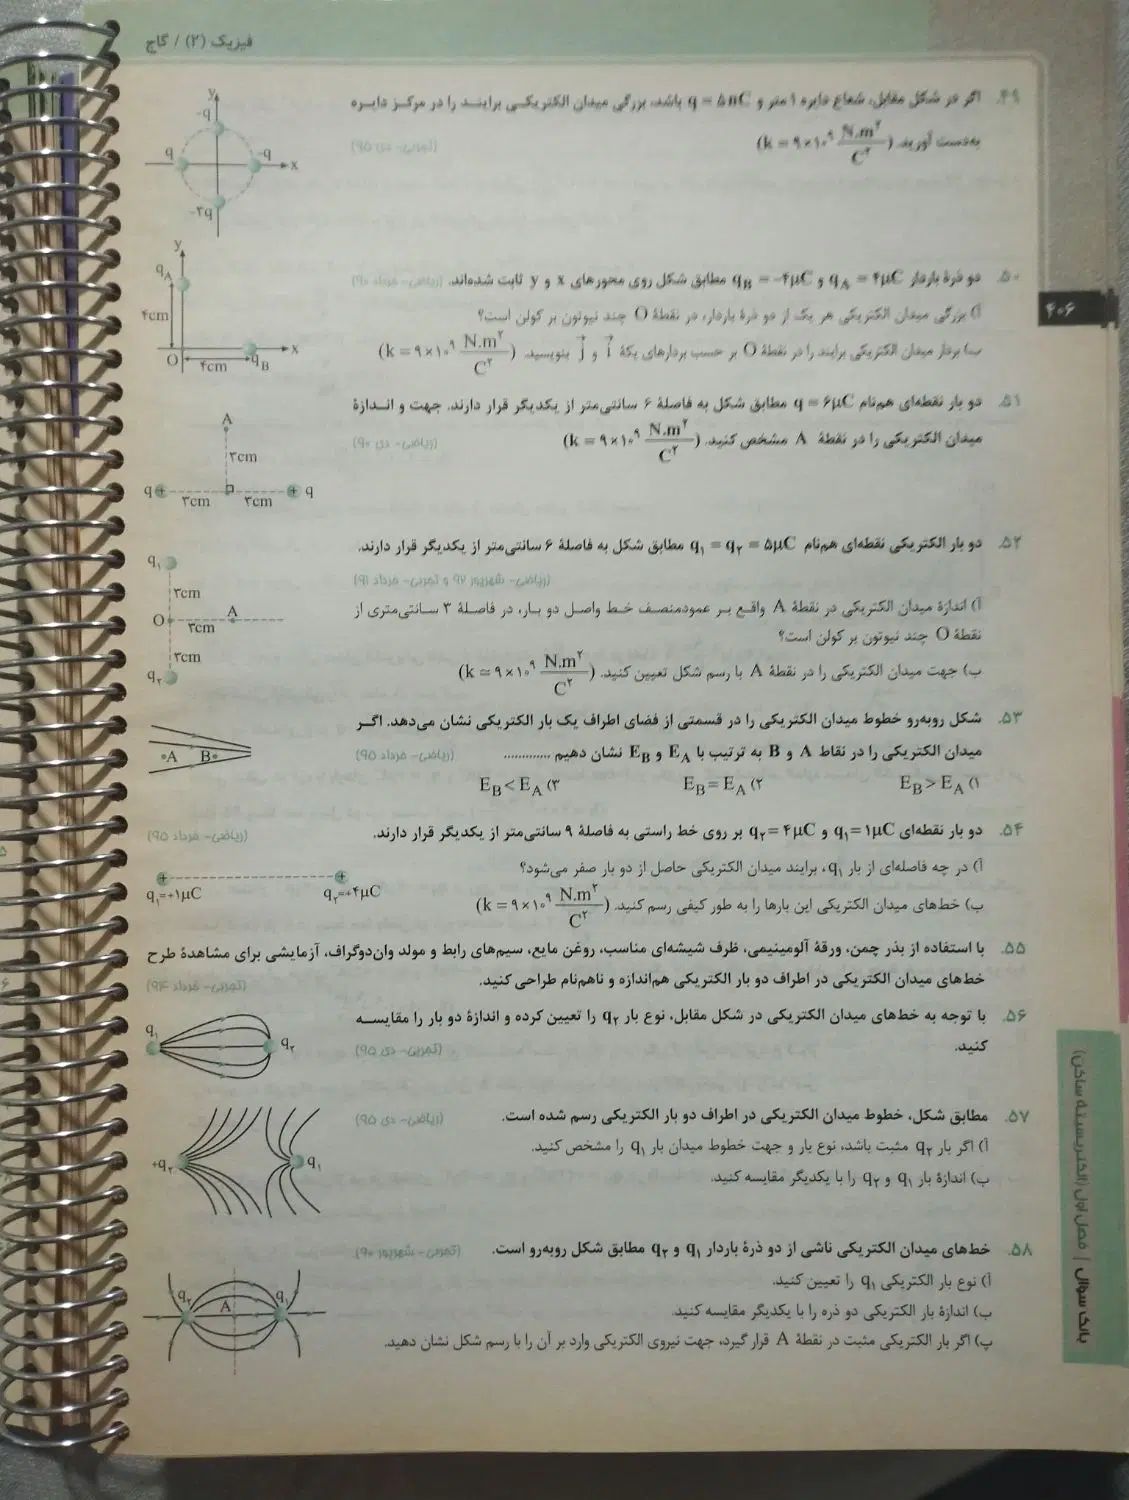 فیزیک (۲) / گاج
۴۰۶
۴۹. اگر در شکل مقابل، شعاع دایره ۱ متر و q = ۵nC باشد، بزرگی میدان الکتریکی برایند را در مرکز دایره
به‌دست آورید. (k = ۹×۱۰^۹ N.m^۲/C^۲) (تجربی- دی ۹۵)
y
-q
q
-q
x
-۲q
۵۰. دو ذرهٔ باردار q_A = ۴μC و q_B = -۴μC مطابق شکل روی محورهای x و y ثابت شده‌اند. (ریاضی- خرداد ۹۰)
آ) بزرگی میدان الکتریکی هر یک از دو ذرهٔ باردار، در نقطهٔ O چند نیوتون بر کولن است؟
ب) بردار میدان الکتریکی برایند را در نقطهٔ O بر حسب بردارهای یکهٔ i و j بنویسید. (k = ۹×۱۰^۹ N.m^۲/C^۲)
y
q_A
۴cm
O
۴cm
q_B
x
۵۱. دو بار نقطه‌ای هم‌نام q = ۶μC مطابق شکل به فاصلهٔ ۶ سانتی‌متر از یکدیگر قرار دارند. جهت و اندازهٔ
میدان الکتریکی را در نقطهٔ A مشخص کنید. (k = ۹×۱۰^۹ N.m^۲/C^۲) (ریاضی- دی ۹۰)
A
۳cm
q + + q
۳cm ۳cm
۵۲. دو بار الکتریکی نقطه‌ای هم‌نام q_۱ = q_۲ = ۵μC مطابق شکل به فاصلهٔ ۶ سانتی‌متر از یکدیگر قرار دارند.
(ریاضی- شهریور ۹۷ و تجربی- خرداد ۹۱)
آ) اندازهٔ میدان الکتریکی در نقطهٔ A واقع بر عمودمنصف خط واصل دو بار، در فاصلهٔ ۳ سانتی‌متری از
نقطهٔ O چند نیوتون بر کولن است؟
ب) جهت میدان الکتریکی را در نقطهٔ A با رسم شکل تعیین کنید. (k = ۹×۱۰^۹ N.m^۲/C^۲)
q_۱
۳cm
O A
۳cm
۳cm
q_۲
۵۳. شکل روبه‌رو خطوط میدان الکتریکی را در قسمتی از فضای اطراف یک بار الکتریکی نشان می‌دهد. اگر
میدان الکتریکی را در نقاط A و B به ترتیب با E_A و E_B نشان دهیم ............. (ریاضی- خرداد ۹۵)
۱) E_B > E_A ۲) E_B = E_A ۳) E_B < E_A
A B
۵۴. دو بار نقطه‌ای q_۱ = ۱μC و q_۲ = ۴μC بر روی خط راستی به فاصلهٔ ۹ سانتی‌متر از یکدیگر قرار دارند.
(ریاضی- خرداد ۹۵)
آ) در چه فاصله‌ای از بار q_۱، برایند میدان الکتریکی حاصل از دو بار صفر می‌شود؟
ب) خط‌های میدان الکتریکی این بارها را به طور کیفی رسم کنید. (k = ۹×۱۰^۹ N.m^۲/C^۲)
+ +
q_۱=+۱μC q_۲=+۴μC
۵۵. با استفاده از بذر چمن، ورقهٔ آلومینیمی، ظرف شیشه‌ای مناسب، روغن مایع، سیم‌های رابط و مولد وان‌دوگراف، آزمایشی برای مشاهدهٔ طرح
خط‌های میدان الکتریکی در اطراف دو بار الکتریکی هم‌اندازه و ناهم‌نام طراحی کنید. (تجربی- خرداد ۹۴)
۵۶. با توجه به خط‌های میدان الکتریکی در شکل مقابل، نوع بار q_۲ را تعیین کرده و اندازهٔ دو بار را مقایسه
کنید. (تجربی- دی ۹۵)
q_۱
q_۲
۵۷. مطابق شکل، خطوط میدان الکتریکی در اطراف دو بار الکتریکی رسم شده است. (ریاضی- دی ۹۵)
آ) اگر بار q_۲ مثبت باشد، نوع بار و جهت خطوط میدان بار q_۱ را مشخص کنید.
ب) اندازهٔ بار q_۱ و q_۲ را با یکدیگر مقایسه کنید.
+q_۲ q_۱
۵۸. خط‌های میدان الکتریکی ناشی از دو ذرهٔ باردار q_۱ و q_۲ مطابق شکل روبه‌رو است. (تجربی- شهریور ۹۰)
آ) نوع بار الکتریکی q_۱ را تعیین کنید.
ب) اندازهٔ بار الکتریکی دو ذره را با یکدیگر مقایسه کنید.
پ) اگر بار الکتریکی مثبت در نقطهٔ A قرار گیرد، جهت نیروی الکتریکی وارد بر آن را با رسم شکل نشان دهید.
q_۲ A q_۱
بانک سوال | فصل اول (الکتریسیتهٔ ساکن)